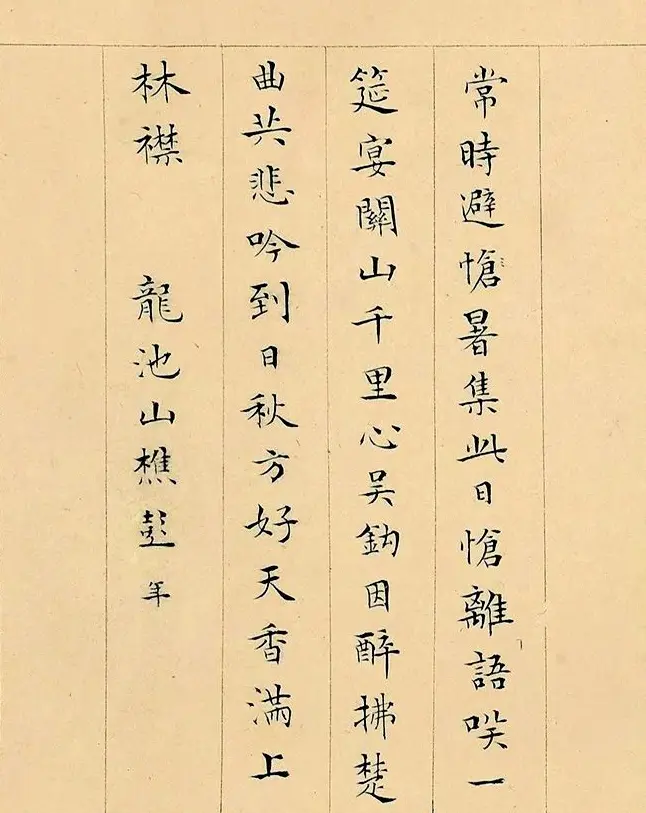 常時避愴暑集此日愴離語咲一
筵宴關山千里心吳鈎因醉拂楚
曲共悲吟到日秋方好天香滿上
林襟　龍池山樵彭年